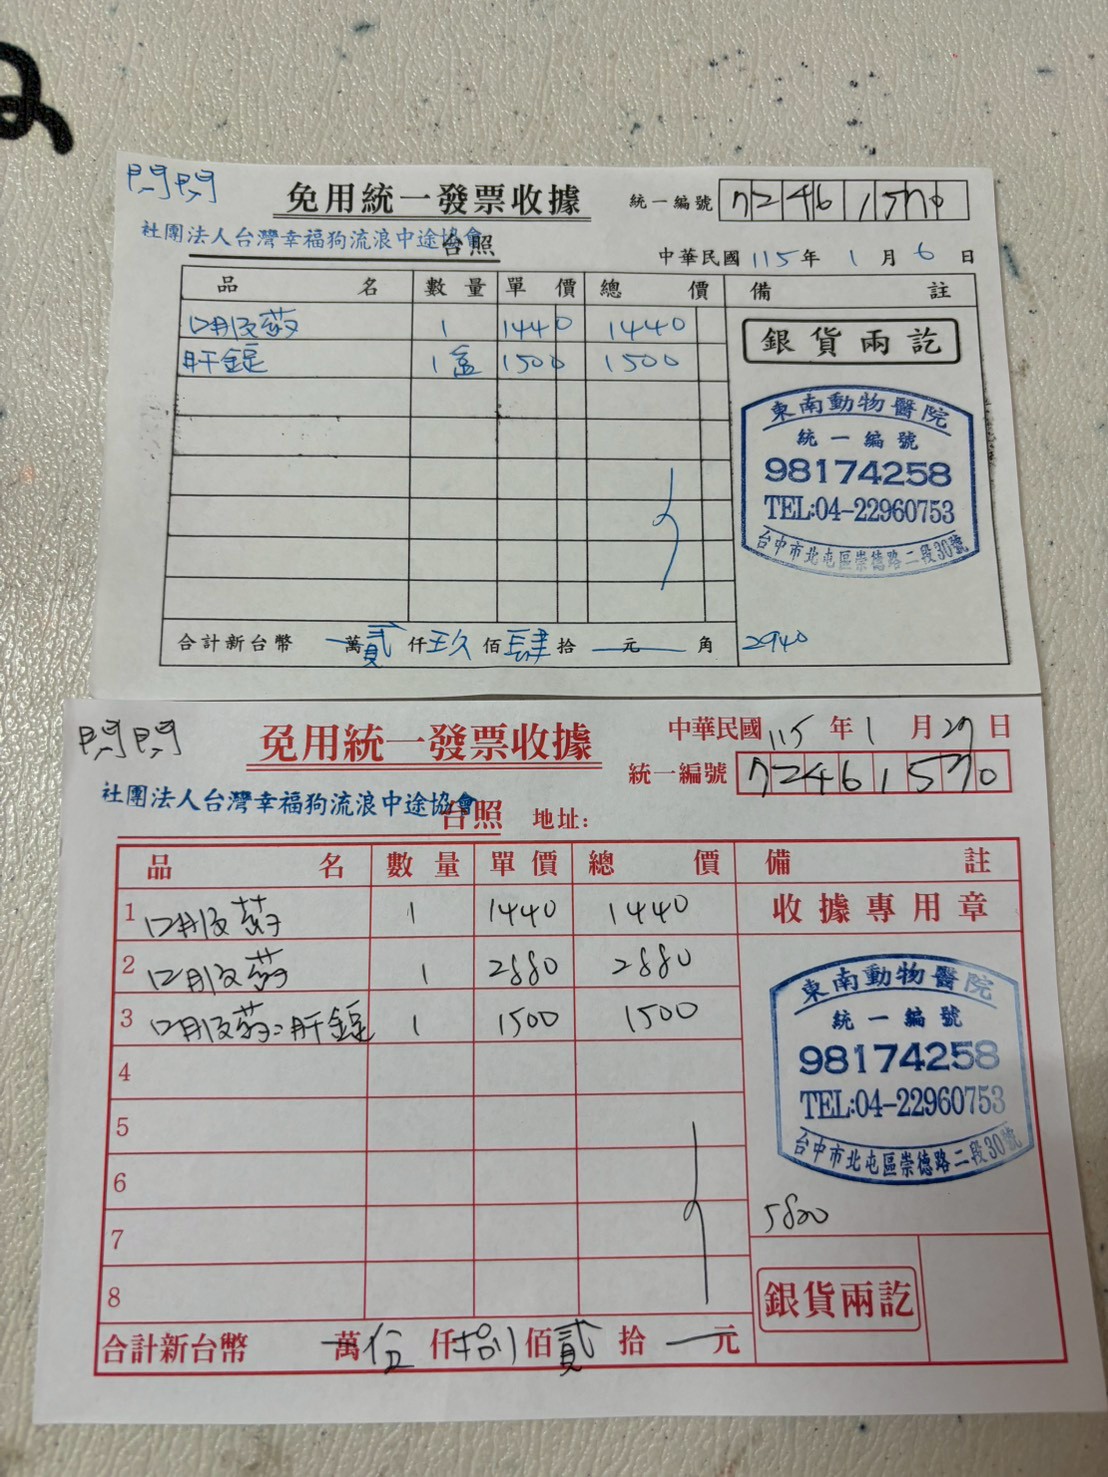 閃閃
免用統一發票收據
統一編號 72461570
社團法人台灣幸福狗流浪中途協會
台照
中華民國 115 年 1 月 6 日
品名 數量 單價 總價 備註
口服葯 1 1440 1440
肝錠 1盒 1500 1500
銀貨兩訖
東南動物醫院
統一編號
98174258
TEL:04-22960753
台中市北屯區崇德路二段30號
合計新台幣 萬貳仟玖佰肆拾元角
2940
閃閃
免用統一發票收據
中華民國 115 年 1 月 27 日
統一編號 72461570
社團法人台灣幸福狗流浪中途協會
台照 地址:
品名 數量 單價 總價 備註
1 口服葯 1 1440 1440
2 口服葯 1 2880 2880
3 口服葯:肝錠 1 1500 1500
4
5
6
7
8
收據專用章
東南動物醫院
統一編號
98174258
TEL:04-22960753
台中市北屯區崇德路二段30號
5820
銀貨兩訖
合計新台幣 萬伍仟捌佰貳拾元